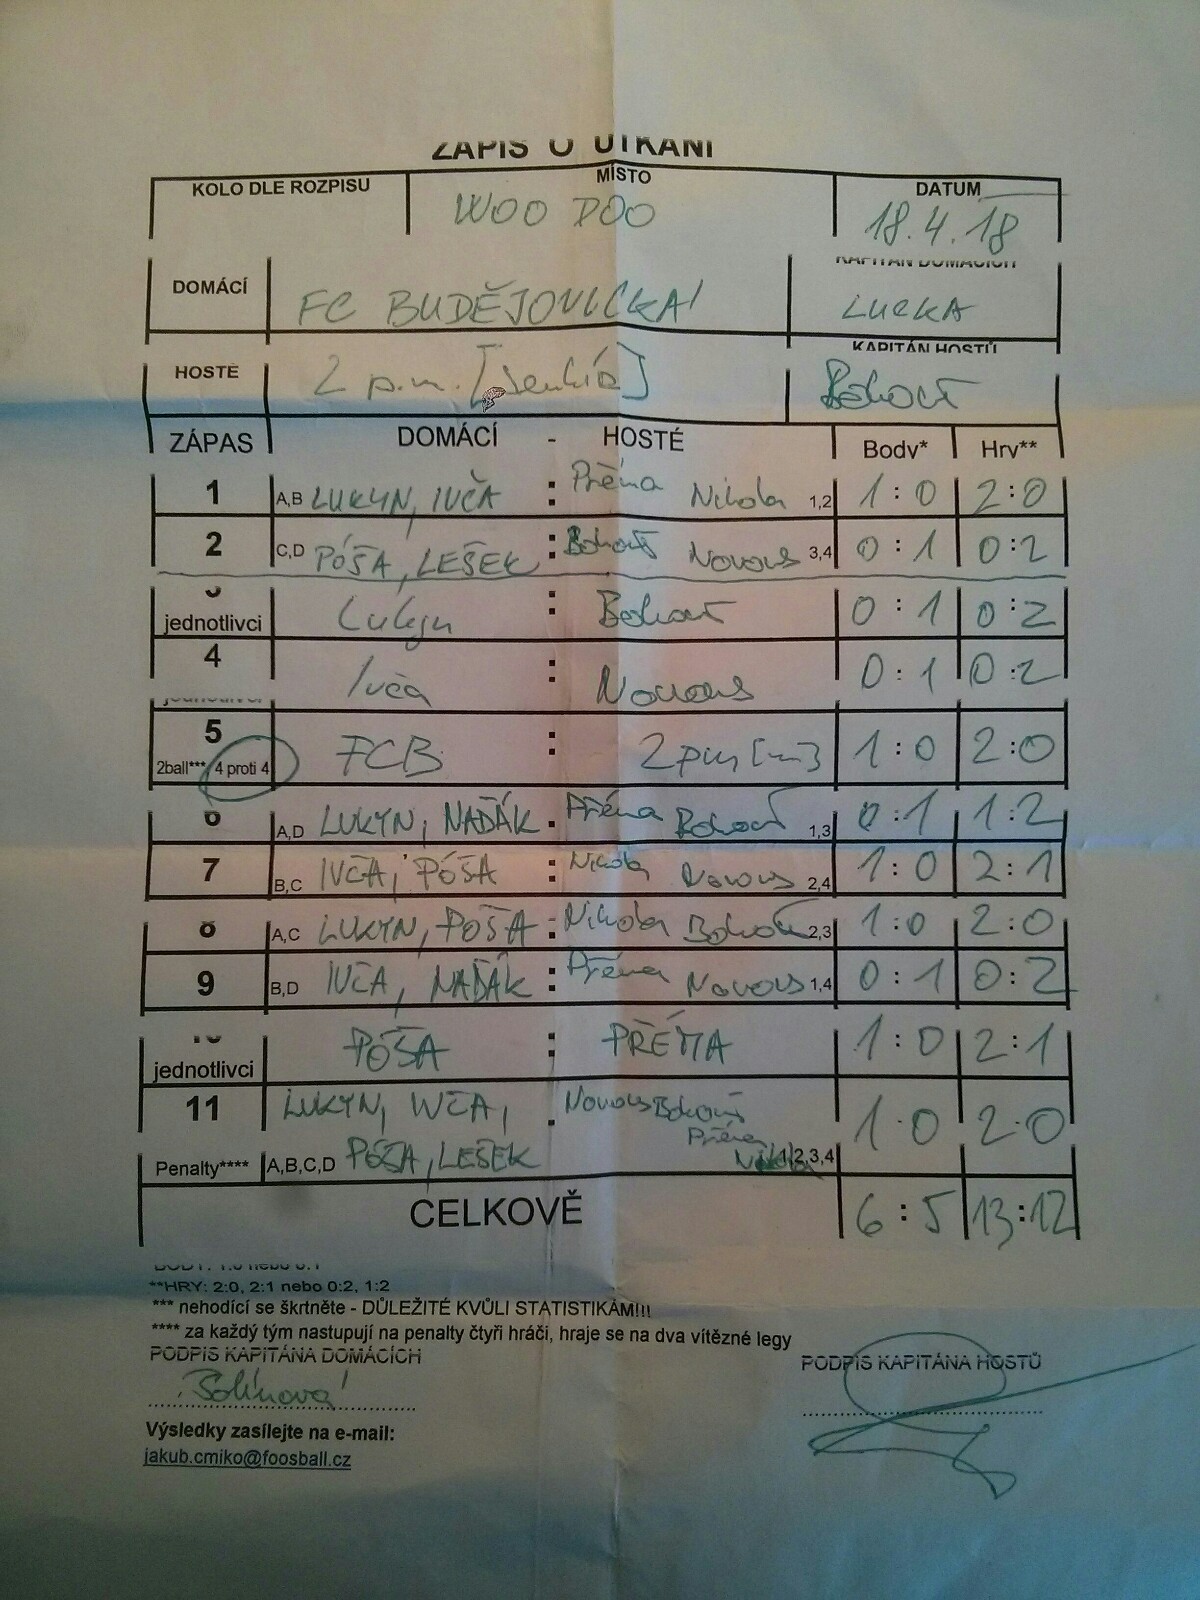 ZÁPIS O UTKÁNÍ
KOLO DLE ROZPISU MÍSTO DATUM
WOO DOO 18.4.18
DOMÁCÍ FC BUDĚJOVICKÁ KAPITÁN DOMÁCÍCH LUCKA
HOSTÉ 2 p.m. KAPITÁN HOSTŮ Bohouš
ZÁPAS DOMÁCÍ - HOSTÉ Body* Hry**
1 A,B LUKYN, IVČA : Přéma Nikola 1,2 1:0 2:0
2 C,D PÓŠA, LEŠEK : Bohouš Novous 3,4 0:1 0:2
3 jednotlivci Lukyn : Bohouš 0:1 0:2
4 jednotlivci Ivča : Novous 0:1 0:2
5 2ball*** 4 proti 4 FCB : 2pm 1:0 2:0
6 A,D LUKYN, NAĎÁK : Přéma Bohouš 1,3 0:1 1:2
7 B,C IVČA, PÓŠA : Nikola Novous 2,4 1:0 2:1
8 A,C LUKYN, PÓŠA : Nikola Bohouš 2,3 1:0 2:0
9 B,D IVČA, NAĎÁK : Přéma Novous 1,4 0:1 0:2
10 jednotlivci PÓŠA : PŘÉMA 1:0 2:1
11 LUKYN, IVČA, : Novous Bohouš 1:0 2:0
Přéma
Penalty**** A,B,C,D PÓŠA, LEŠEK Nikola 1,2,3,4
CELKOVĚ 6:5 13:12
*BODY: 1:0 nebo 0:1
**HRY: 2:0, 2:1 nebo 0:2, 1:2
*** nehodící se škrtněte - DŮLEŽITÉ KVŮLI STATISTIKÁM!!!
**** za každý tým nastupují na penalty čtyři hráči, hraje se na dva vítězné legy
PODPIS KAPITÁNA DOMÁCÍCH PODPIS KAPITÁNA HOSTŮ
Výsledky zasílejte na e-mail:
jakub.cmiko@foosball.cz